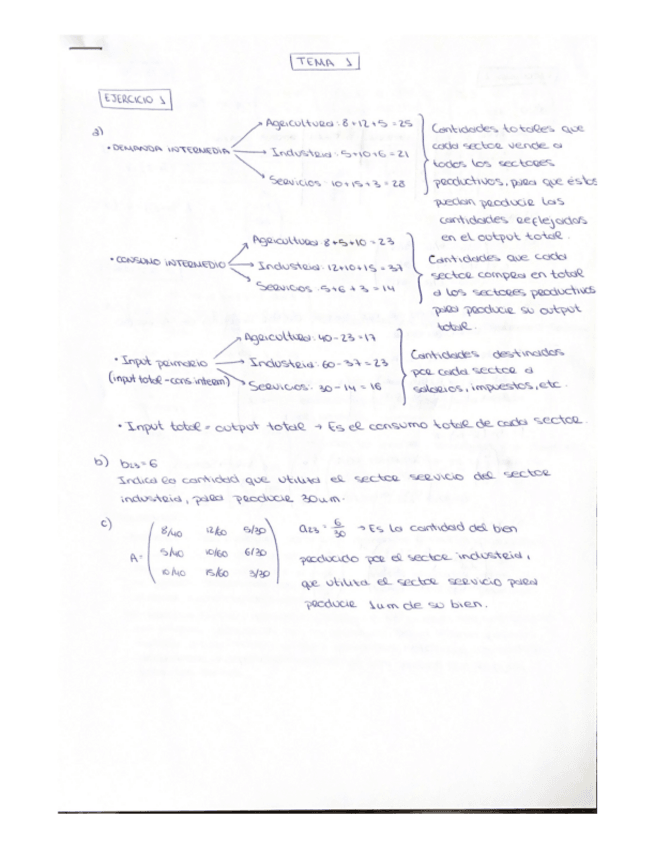 TEMA 1
EJERCICIO 1
a)
• DEMANDA INTERMEDIA
Agricultura: 8+12+5=25
Industria: 5+10+6=21
Servicios: 10+15+3=28
Cantidades totales que
cada sector vende a
todos los sectores
productivos, para que éstos
puedan producir las
cantidades reflejadas
en el output total.
• CONSUMO INTERMEDIO
Agricultura 8+5+10=23
Industria: 12+10+15=37
Servicios: 5+6+3=14
Cantidades que cada
sector compra en total
a los sectores productivos
para producir su output
total.
• Input primario
(input total-cons.interm)
Agricultura: 40-23=17
Industria: 60-37=23
Servicios: 30-14=16
Cantidades destinadas
por cada sector a
salarios, impuestos, etc.
• Input total = output total → Es el consumo total de cada sector.
b) b23=6
Indica la cantidad que utiliza el sector servicio del sector
industria, para producir 30um.
c)
A=
8/40 12/60 5/30
5/40 10/60 6/30
10/40 15/60 3/30
a23 = 6/30 → Es la cantidad del bien
producido por el sector industria,
que utiliza el sector servicio para
producir 1um de su bien.